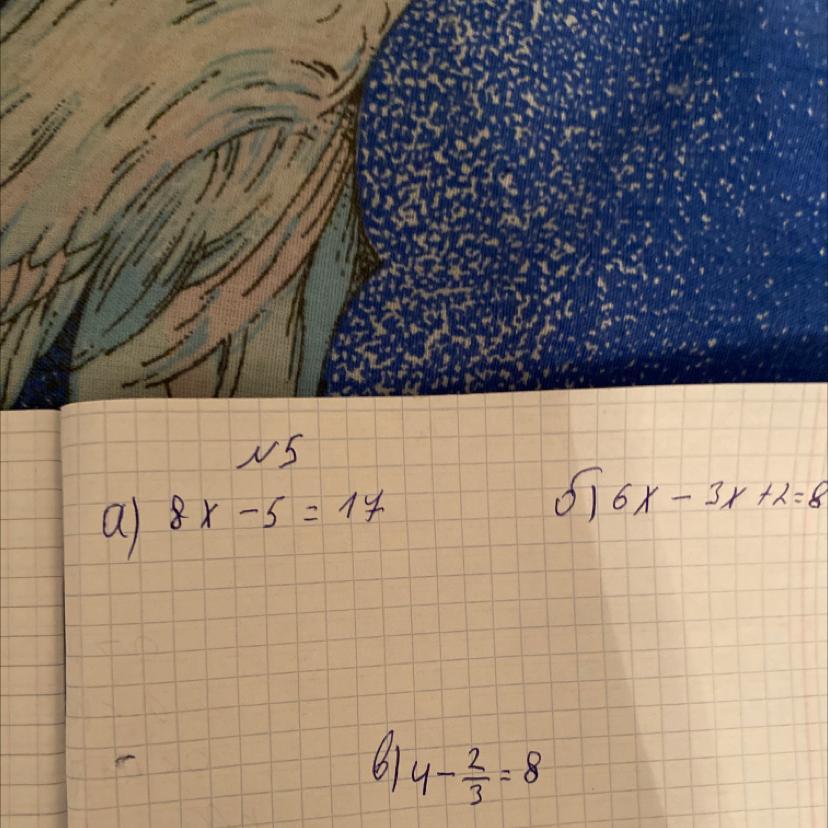 №5
а) 8x - 5 = 17
б) 6x - 3x + 2 = 8
в) y - \frac{2}{3} = 8